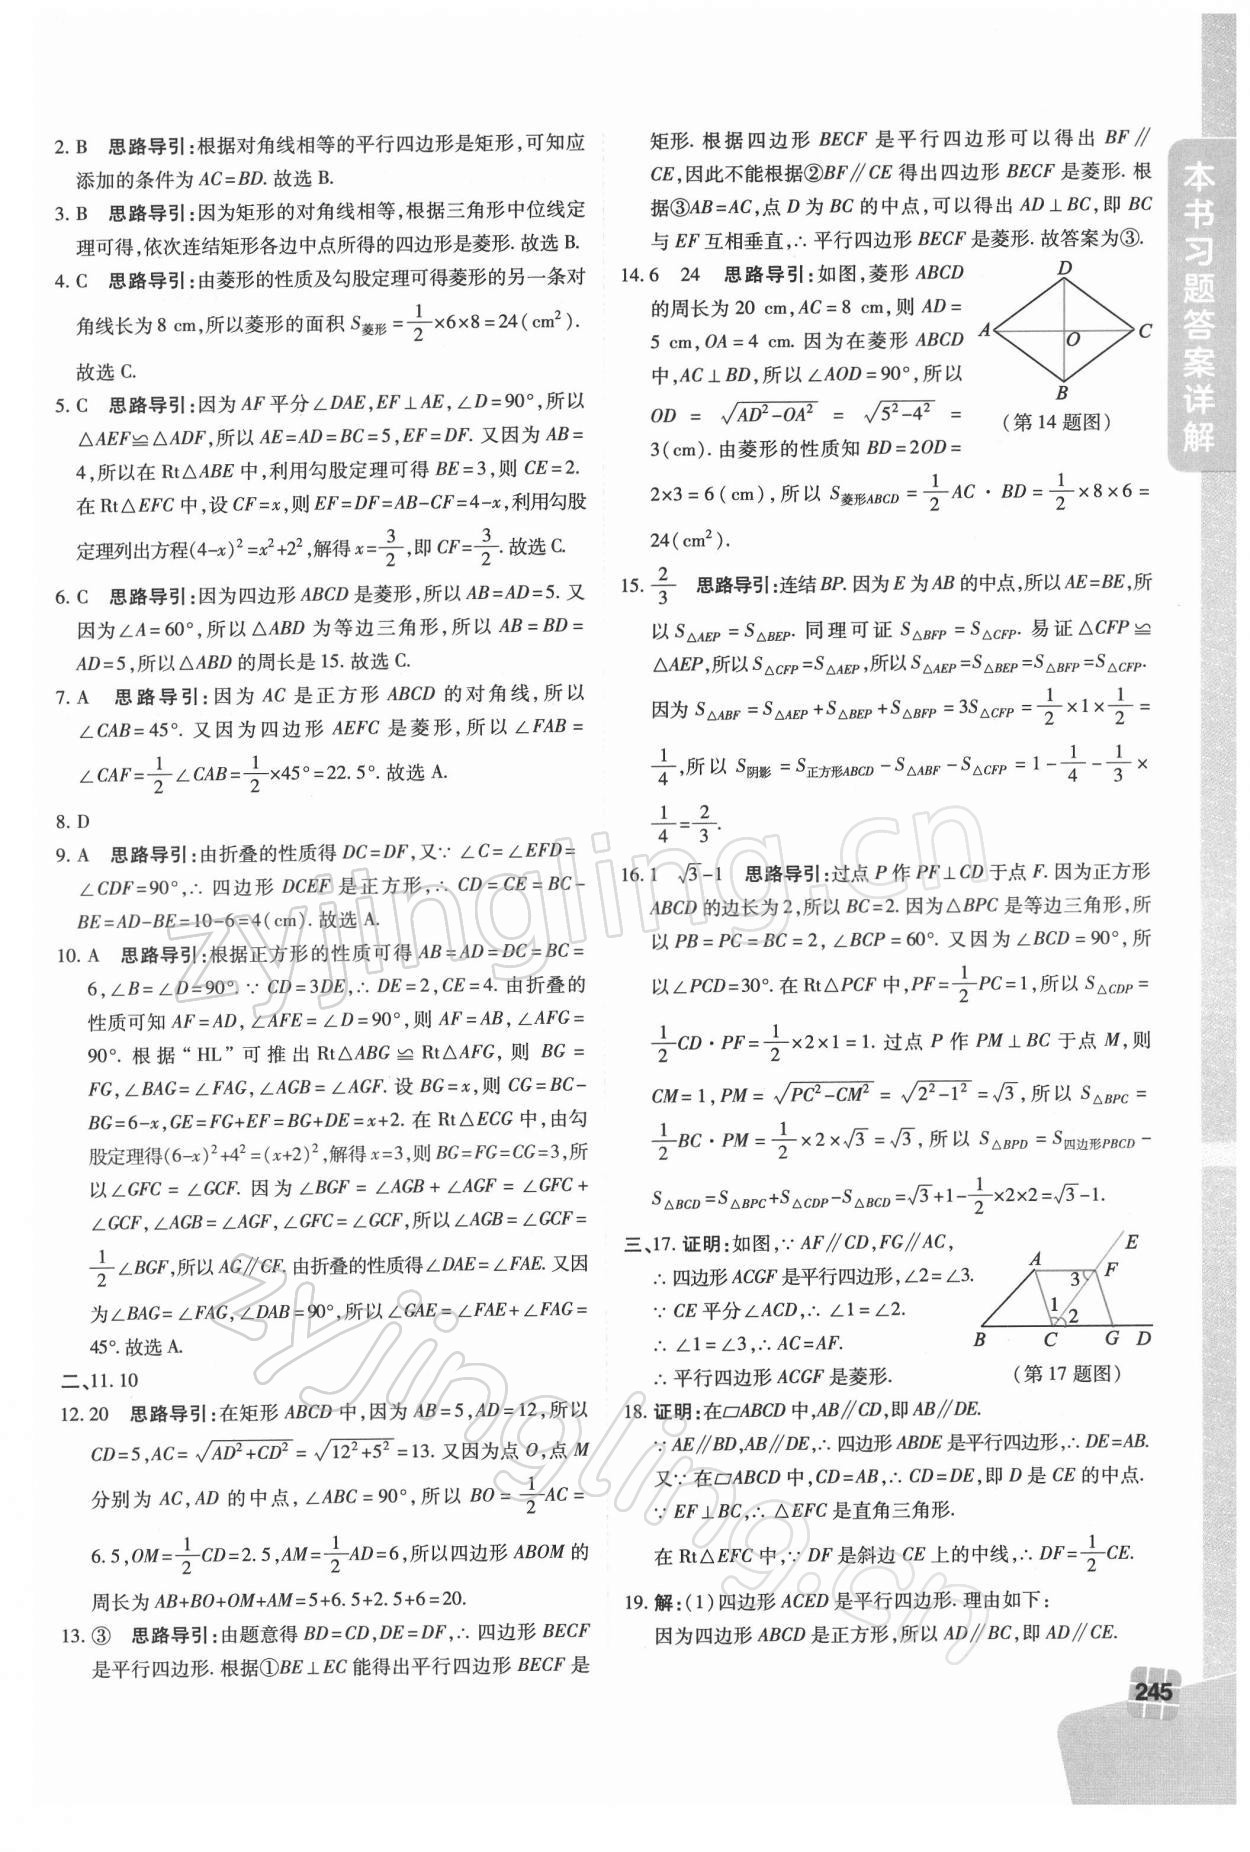 2. B　思路导引:根据对角线相等的平行四边形是矩形,可知应
添加的条件为 AC=BD. 故选 B.
3. B　思路导引:因为矩形的对角线相等,根据三角形中位线定
理可得,依次连结矩形各边中点所得的四边形是菱形. 故选 B.
4. C　思路导引:由菱形的性质及勾股定理可得菱形的另一条对
角线长为 8 cm,所以菱形的面积 S菱形=1/2×6×8=24(cm²).
故选 C.
5. C　思路导引:因为 AF 平分∠DAE,EF⊥AE,∠D=90°,所以
△AEF≌△ADF,所以 AE=AD=BC=5,EF=DF. 又因为 AB=
4,所以在 Rt△ABE 中,利用勾股定理可得 BE=3,则 CE=2.
在 Rt△EFC 中,设 CF=x,则 EF=DF=AB-CF=4-x,利用勾股
定理列出方程(4-x)²=x²+2²,解得 x=3/2,即 CF=3/2. 故选 C.
6. C　思路导引:因为四边形 ABCD 是菱形,所以 AB=AD=5. 又
因为∠A=60°,所以△ABD 为等边三角形,所以 AB=BD=
AD=5,所以△ABD 的周长是 15. 故选 C.
7. A　思路导引:因为 AC 是正方形 ABCD 的对角线,所以
∠CAB=45°. 又因为四边形 AEFC 是菱形,所以∠FAB=
∠CAF=1/2∠CAB=1/2×45°=22.5°. 故选 A.
8. D
9. A　思路导引:由折叠的性质得 DC=DF,又∵∠C=∠EFD=
∠CDF=90°,∴四边形 DCEF 是正方形,∴CD=CE=BC-
BE=AD-BE=10-6=4(cm). 故选 A.
10. A　思路导引:根据正方形的性质可得 AB=AD=DC=BC=
6,∠B=∠D=90°. ∵CD=3DE,∴DE=2,CE=4. 由折叠的
性质可知 AF=AD,∠AFE=∠D=90°,则 AF=AB,∠AFG=
90°. 根据“HL”可推出 Rt△ABG≌Rt△AFG,则 BG=
FG,∠BAG=∠FAG,∠AGB=∠AGF. 设 BG=x,则 CG=BC-
BG=6-x,GE=FG+EF=BG+DE=x+2. 在 Rt△ECG 中,由勾
股定理得(6-x)²+4²=(x+2)²,解得 x=3,则 BG=FG=CG=3,所
以∠GFC=∠GCF. 因为∠BGF=∠AGB+∠AGF=∠GFC+
∠GCF,∠AGB=∠AGF,∠GFC=∠GCF,所以∠AGB=∠GCF=
1/2∠BGF,所以 AG∥CF. 由折叠的性质得∠DAE=∠FAE. 又因
为∠BAG=∠FAG,∠DAB=90°,所以∠GAE=∠FAE+∠FAG=
45°. 故选 A.
二、11. 10
12. 20　思路导引:在矩形 ABCD 中,因为 AB=5,AD=12,所以
CD=5,AC=√(AD²+CD²)=√(12²+5²)=13. 又因为点 O,点 M
分别为 AC,AD 的中点,∠ABC=90°,所以 BO=1/2AC=
6.5,OM=1/2CD=2.5,AM=1/2AD=6,所以四边形 ABOM 的
周长为 AB+BO+OM+AM=5+6.5+2.5+6=20.
13. ③　思路导引:由题意得 BD=CD,DE=DF,∴四边形 BECF
是平行四边形. 根据①BE⊥EC 能得出平行四边形 BECF 是
矩形. 根据四边形 BECF 是平行四边形可以得出 BF∥
CE,因此不能根据②BF∥CE 得出四边形 BECF 是菱形. 根
据③AB=AC,点 D 为 BC 的中点,可以得出 AD⊥BC,即 BC
与 EF 互相垂直,∴平行四边形 BECF 是菱形. 故答案为③.
14. 6　24　思路导引:如图,菱形 ABCD
的周长为 20 cm,AC=8 cm,则 AD=
5 cm,OA=4 cm. 因为在菱形 ABCD
中,AC⊥BD,所以∠AOD=90°,所以
OD=√(AD²-OA²)=√(5²-4²)=
3(cm). 由菱形的性质知 BD=2OD=
2×3=6(cm),所以 S菱形ABCD=1/2AC·BD=1/2×8×6=
24(cm²).
D
A
O
C
B
(第 14 题图)
15. 2/3　思路导引:连结 BP. 因为 E 为 AB 的中点,所以 AE=BE,所
以 S△AEP=S△BEP. 同理可证 S△BFP=S△CFP. 易证△CFP≌
△AEP,所以 S△CFP=S△AEP,所以 S△AEP=S△BEP=S△BFP=S△CFP.
因为 S△ABF=S△AEP+S△BEP+S△BFP=3S△CFP=1/2×1×1/2=
1/4,所以 S阴影=S正方形ABCD-S△ABF-S△CFP=1-1/4-1/3×
1/4=2/3.
16. 1　√3-1　思路导引:过点 P 作 PF⊥CD 于点 F. 因为正方形
ABCD 的边长为 2,所以 BC=2. 因为△BPC 是等边三角形,所
以 PB=PC=BC=2,∠BCP=60°. 又因为∠BCD=90°,所
以∠PCD=30°. 在 Rt△PCF 中,PF=1/2PC=1,所以 S△CDP=
1/2CD·PF=1/2×2×1=1. 过点 P 作 PM⊥BC 于点 M,则
CM=1,PM=√(PC²-CM²)=√(2²-1²)=√3,所以 S△BPC=
1/2BC·PM=1/2×2×√3=√3,所以 S△BPD=S四边形PBCD-
S△BCD=S△BPC+S△CDP-S△BCD=√3+1-1/2×2×2=√3-1.
三、17. 证明:如图,∵AF∥CD,FG∥AC,
∴四边形 ACGF 是平行四边形,∠2=∠3.
∵CE 平分∠ACD,∴∠1=∠2.
∴∠1=∠3,∴AC=AF.
∴平行四边形 ACGF 是菱形.
E
A
3
F
1
2
B
C
G
D
(第 17 题图)
18. 证明:在▱ABCD 中,AB∥CD,即 AB∥DE.
∵AE∥BD,AB∥DE,∴四边形 ABDE 是平行四边形,∴DE=AB.
又∵在▱ABCD 中,CD=AB,∴CD=DE,即 D 是 CE 的中点.
∵EF⊥BC,∴△EFC 是直角三角形.
在 Rt△EFC 中,∵DF 是斜边 CE 上的中线,∴DF=1/2CE.
19. 解:(1)四边形 ACED 是平行四边形. 理由如下:
因为四边形 ABCD 是正方形,所以 AD∥BC,即 AD∥CE.
本书习题答案详解
245
zyjingling.cn
zyjingling.cn